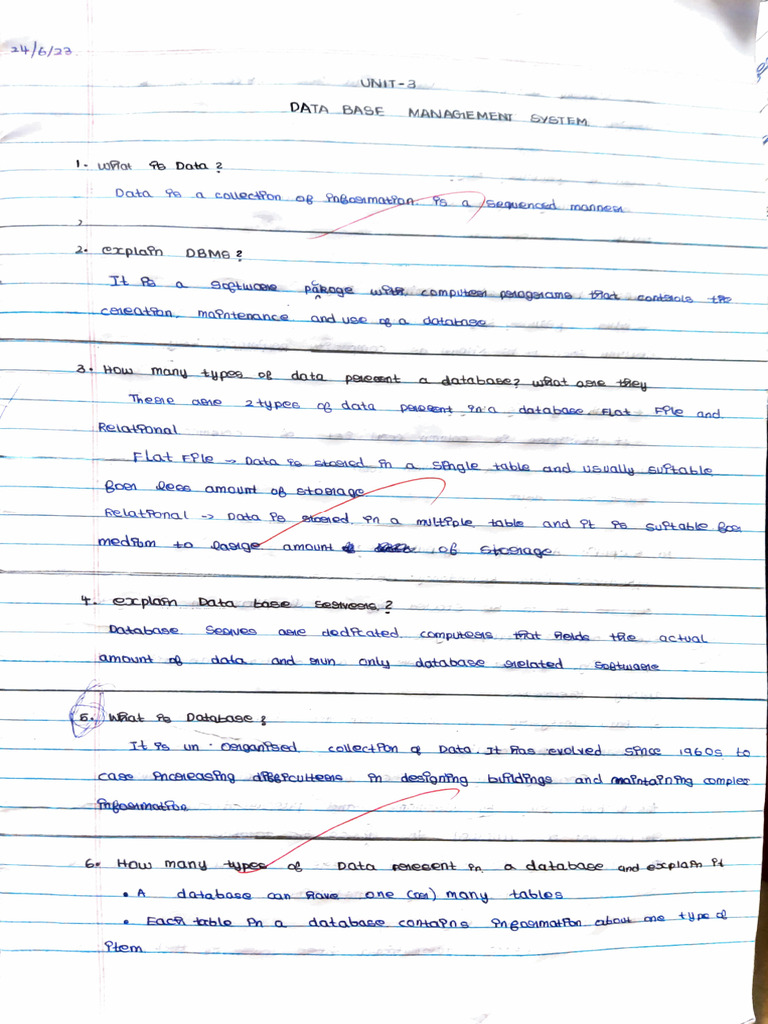 24/6/23
UNIT-3
DATA BASE MANAGEMENT SYSTEM
1. What is Data?
Data is a collection of information is a sequenced manner
2. explain DBMS?
It is a software pakage with computer programs that controls the
creation, maintenance and use of a database
3. How many types of data present a database? what are they
There are 2 types of data present in a database. Flat File and
Relational
Flat File → Data is stored in a single table and usually suitable
for less amount of storage
Relational → Data is stored in a multiple table and it is suitable for
medium to large amount of storage
4. explain Data base servers?
Database Serves are dedicated computers that holds the actual
amount of data and run only database related software
5. What is Database?
It is un organised collection of Data. It has evolved since 1960s to
case increasing difficulters in designing buildings and maintaining complex
information
6. How many types of Data present in a database and explain it
• A database can have one (or) many tables
• Each table in a database contains information about one type of
item